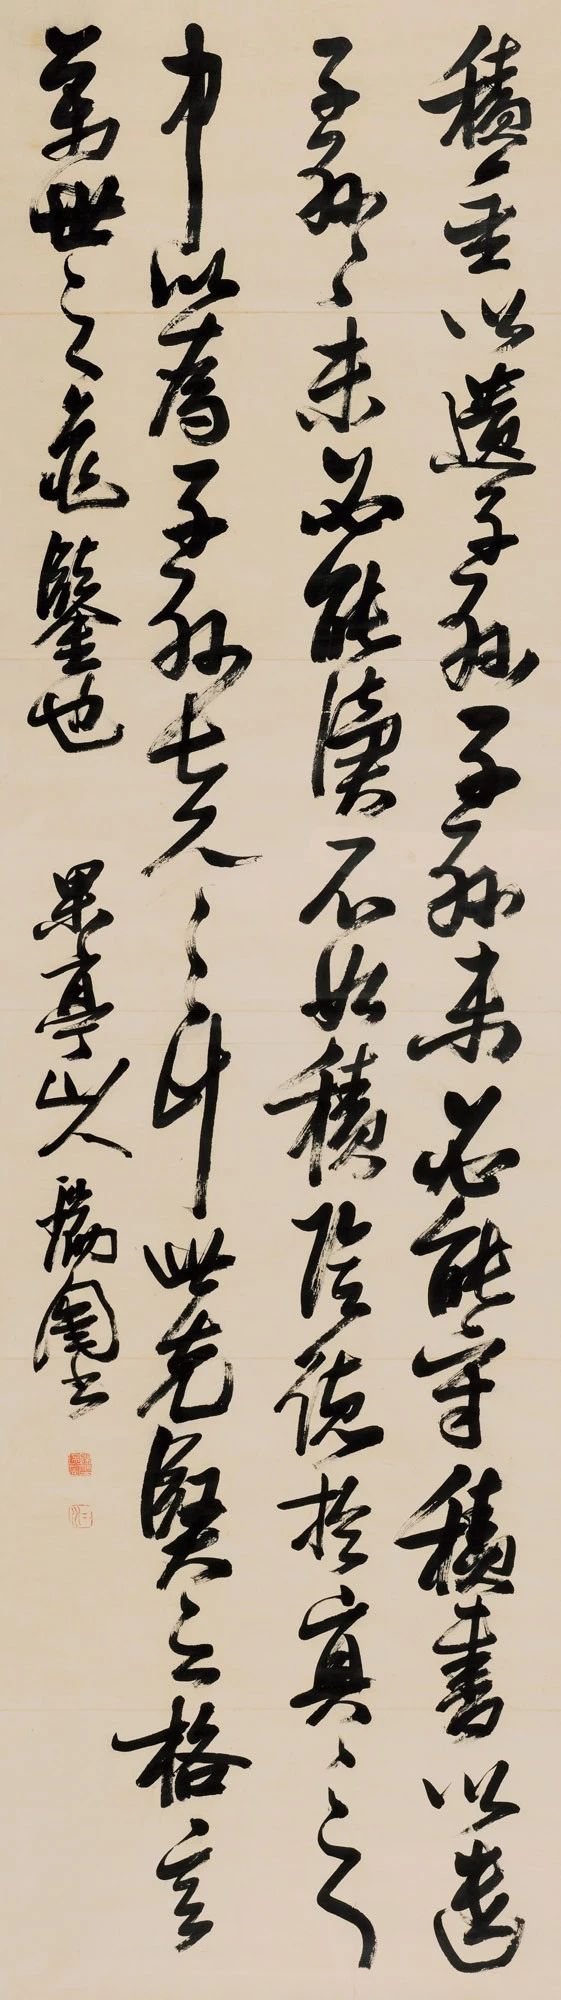 積金以遺子孫子孫未必能守積書以遺
子孫々未必能讀不如積陰德於冥々之
中以為子孫長久之計此先賢之格言
萬世之龜鑒也
果亭山人瑞圖書